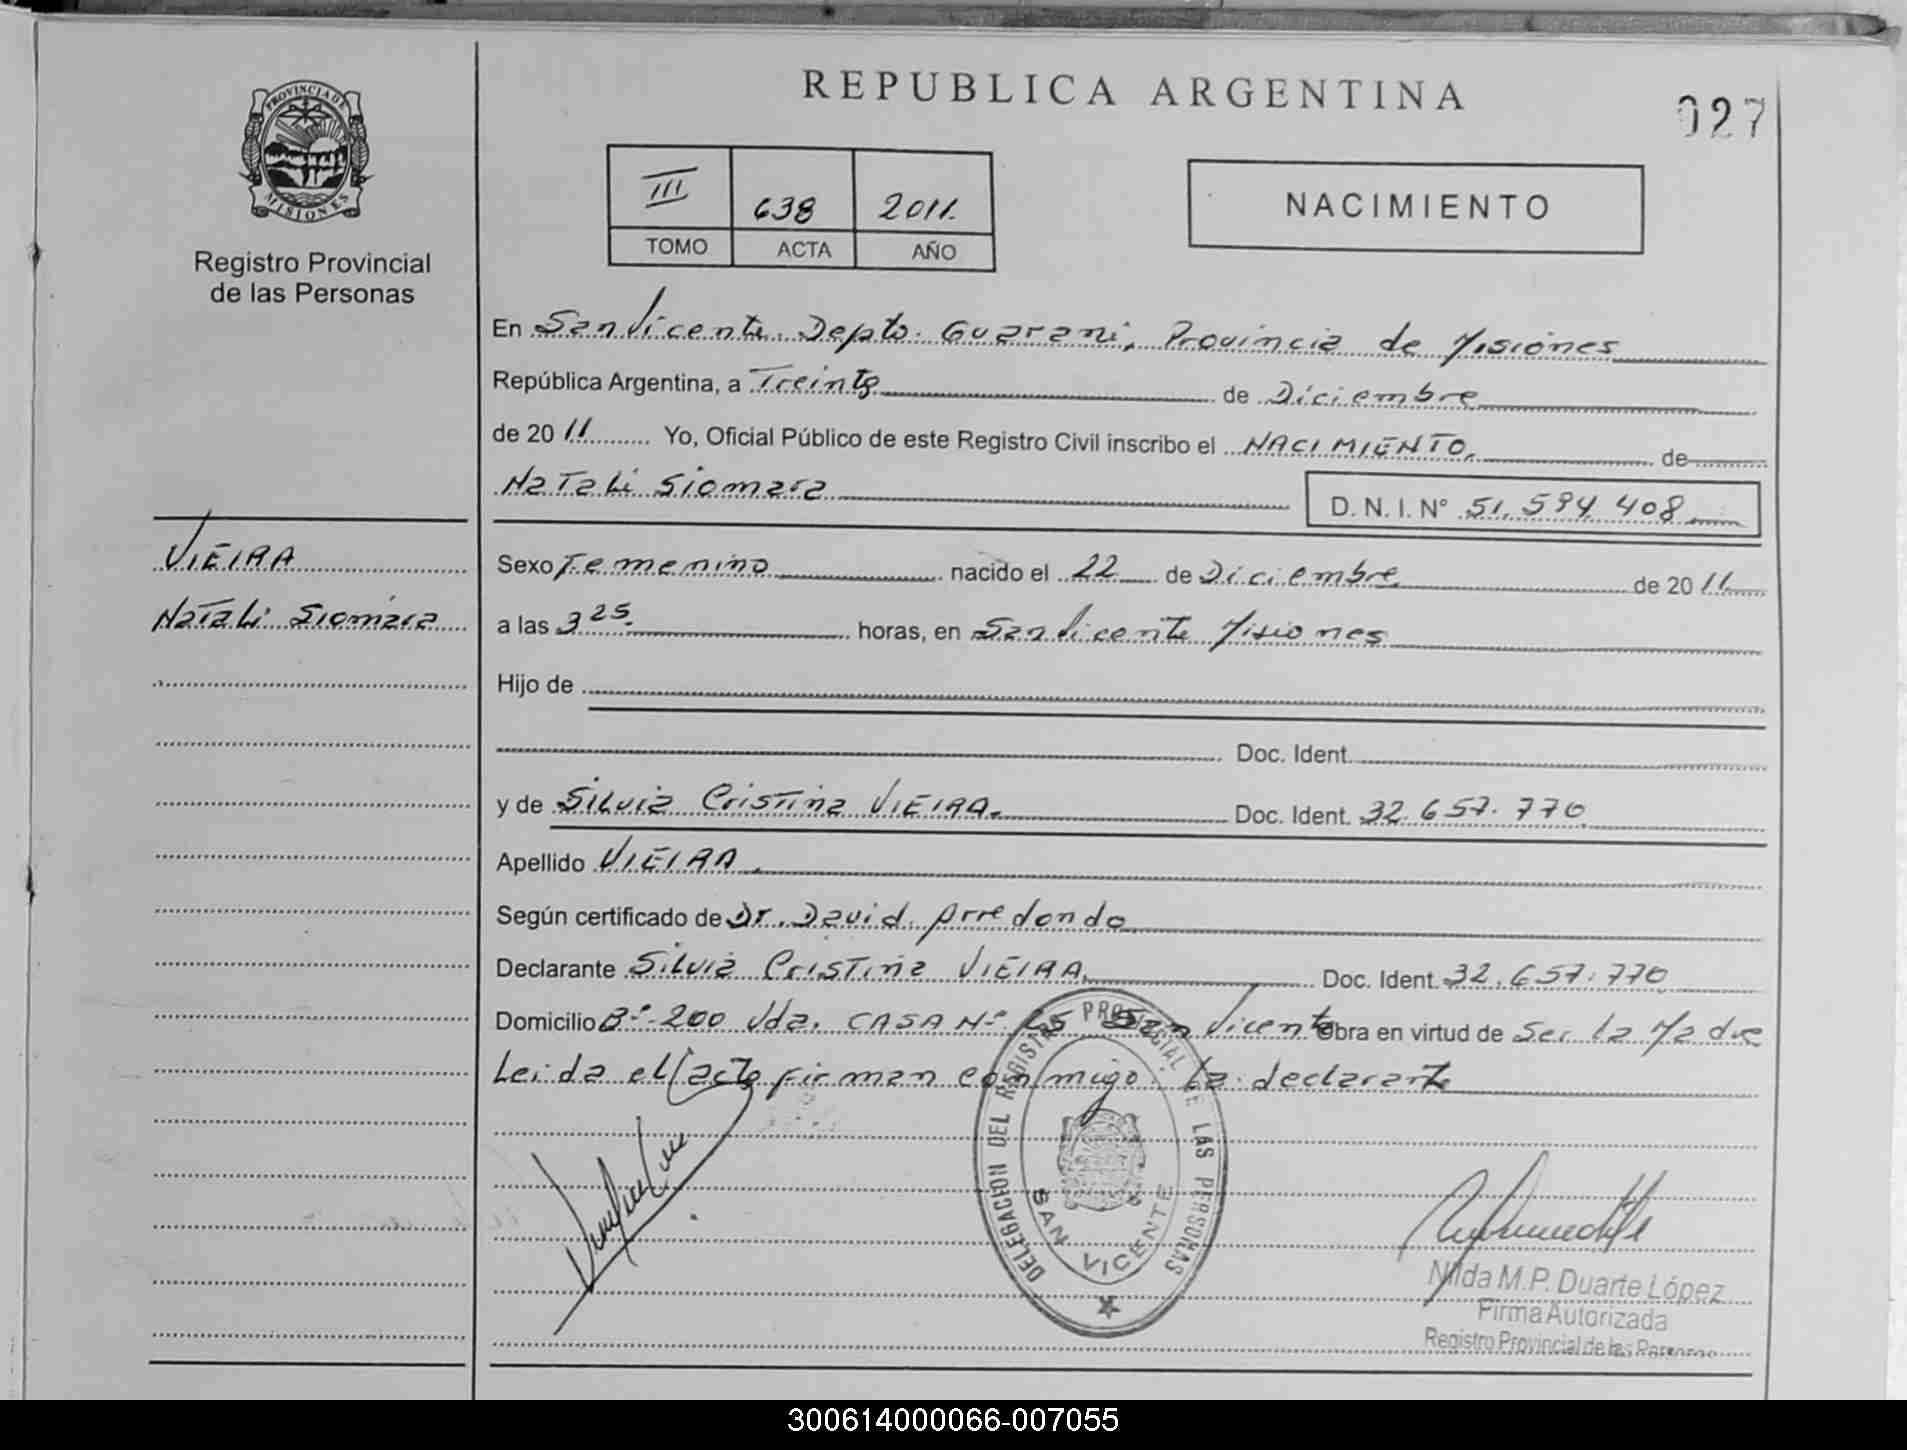 REPUBLICA ARGENTINA
027
PROVINCIA DE
MISIONES
Registro Provincial
de las Personas
III 638 2011.
TOMO ACTA AÑO
NACIMIENTO
En San Vicente. Depto. Guarani, Provincia de Misiones
República Argentina, a Treinta de Diciembre
de 2011 Yo, Oficial Público de este Registro Civil inscribo el NACIMIENTO. de
Natali Siomara D. N. I. Nº 51.594.408
VIEIRA
Natali Siomara
Sexo Femenino nacido el 22 de Diciembre de 2011
a las 3 25. horas, en San Vicente Misiones
Hijo de
Doc. Ident.
y de Silvia Cristina VIEIRA. Doc. Ident. 32.657.770
Apellido VIEIRA.
Según certificado de Dr. David Arredondo
Declarante Silvia Cristina VIEIRA. Doc. Ident. 32.657.770
Domicilio Bº 200 Vda. CASA Nº San Vicente Obra en virtud de Ser La Madre
Leida el acta firman conmigo. La declarante
DELEGACION DEL REGISTRO PROVINCIAL DE LAS PERSONAS
SAN VICENTE
Nilda M.P. Duarte López
Firma Autorizada
Registro Provincial de las Personas
300614000066-007055